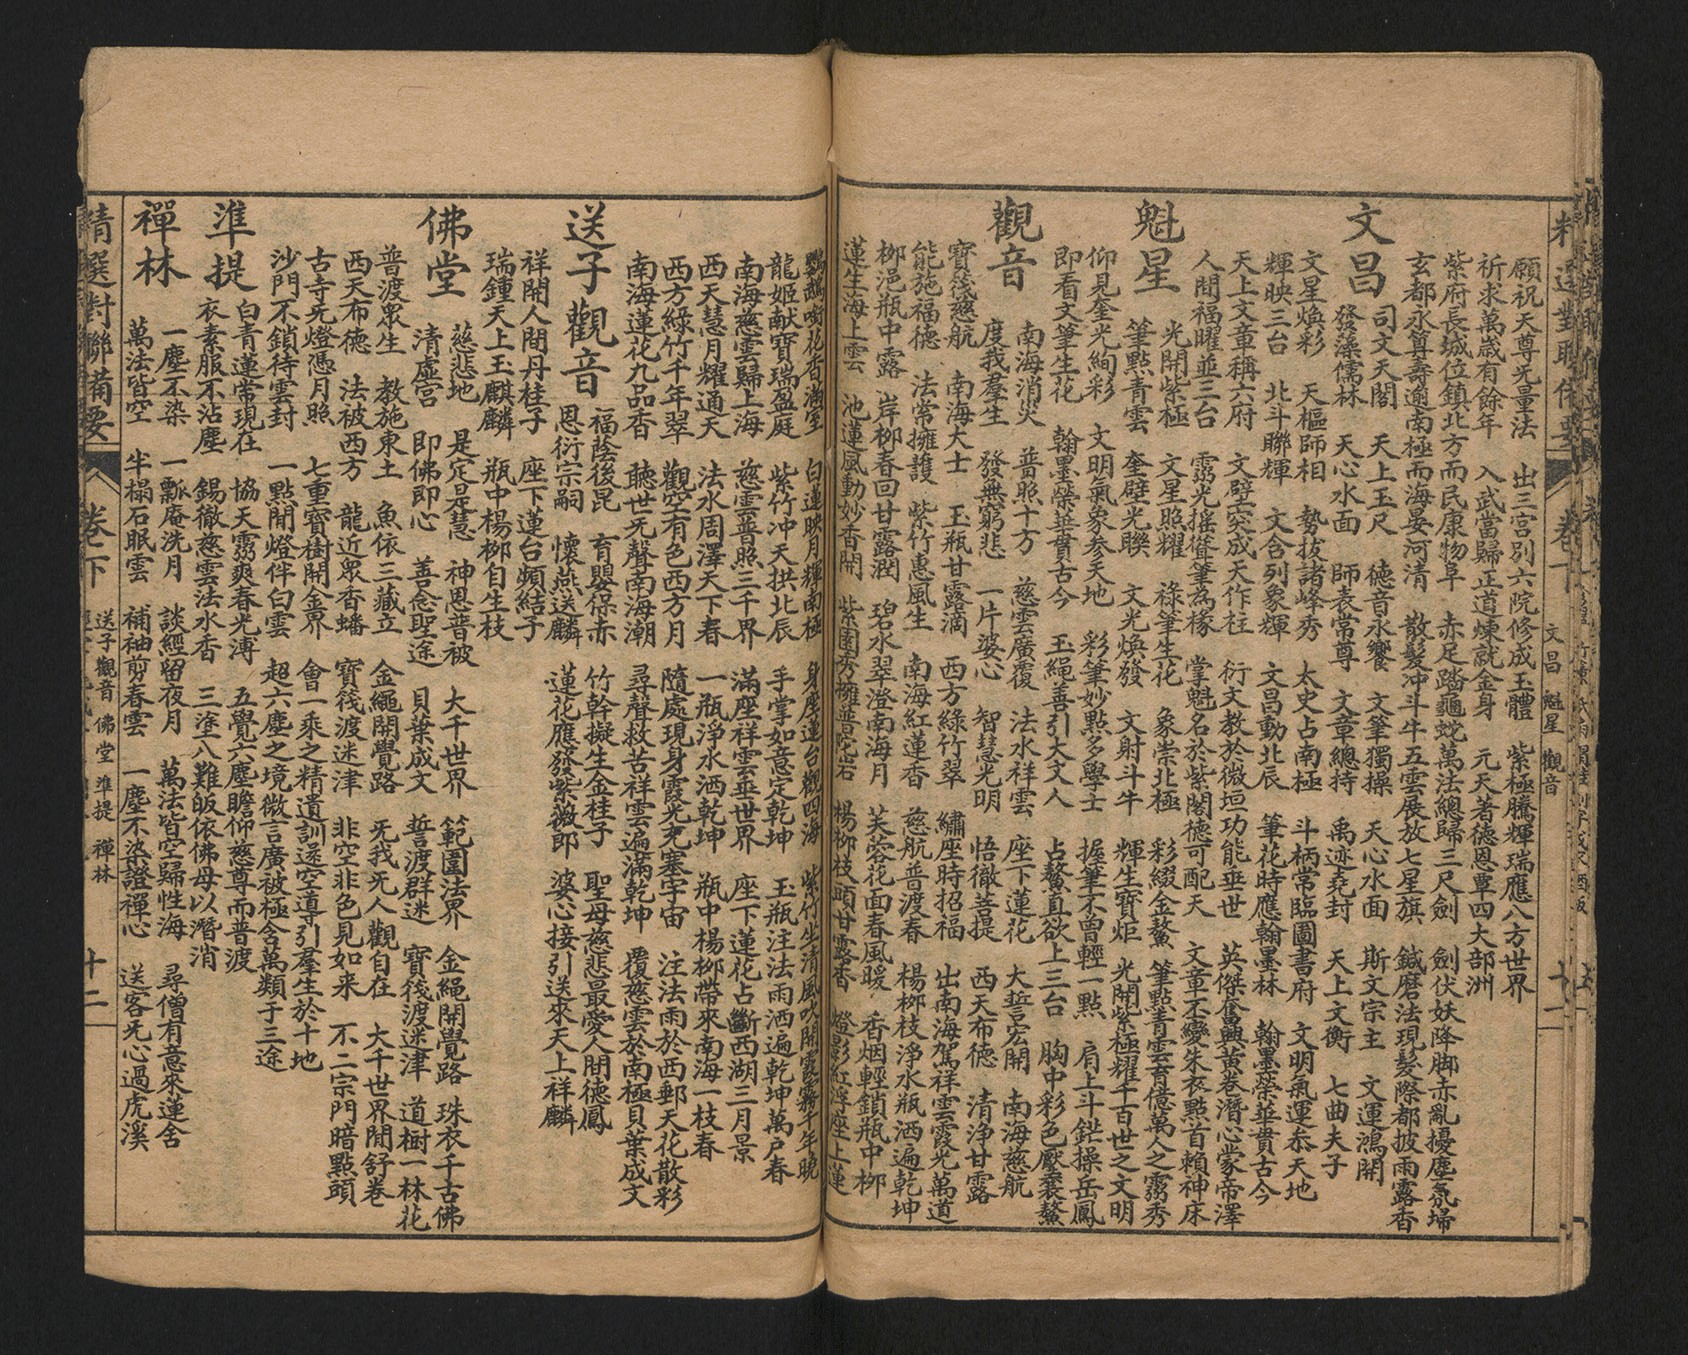 願祝天尊无量法　出三宮別六院修成玉體　紫極騰輝瑞應八方世界
祈求萬歲有餘年　入武當歸正道煉就金身　元天著德恩覃四大部洲
紫府長城位鎮北方而民康物阜　赤足踏龜蛇萬法總歸三尺劍　劍伏妖降脚赤亂擾塵氛埽
玄都永算壽逾南極而海晏河清　散髮冲斗牛五雲展放七星旗　鍼磨法現髮際都披雨露香
文昌
司文天閣　天上玉尺　德音永饗　文筆獨操　天心水面　斯文宗主　文運鴻開
發藻儒林　天心水面　師表常尊　文章總持　禹迹堯封　天上文衡　七曲夫子
文星煥彩　天樞師相　勢拔諸峰秀　太史占南極　斗柄常臨圖書府　文明氣運泰天地
輝映三台　北斗聯輝　文含列象輝　文昌動北辰　筆花時應翰墨林　翰墨榮華貫古今
天上文章稱六府　文壁突成天作柱　衍文教於微垣功能垂世　英傑奮興黃卷潛心蒙帝澤
人間福曜並三台　靈光搖聳筆為椽　掌魁名於紫閣德可配天　文章丕變朱衣點首賴神床
魁星
光開紫極　文星照耀　祿筆生花　象崇北極　彩綴金鰲　筆點青雲育億萬人之靈秀
筆點青雲　奎壁光聯　文光煥發　文射斗牛　輝生寶炬　光開紫極耀千百世之文明
仰見奎光絢彩　文明氣象參天地　彩筆妙點多學士　握筆不曾輕一點　肩上斗鎈操岳鳳
即看文筆生花　翰墨榮華貫古今　玉繩善引大文人　占鰲真欲上三台　胸中彩色壓蓑鰲
觀音
南海消災　普照十方　慈雲廣覆　法水祥雲　座下蓮花　大誓宏開　南海慈航
度我羣生　發無窮悲　一片婆心　智慧光明　悟徹菩提　西天布德　清浄甘露
寶筏慈航　南海大士　玉瓶甘露滴　西方綠竹翠　繡座時招福　出南海駕祥雲霞光萬道
能施福德　法常擁護　紫竹惠風生　南海紅蓮香　慈航普渡春　楊柳枝淨水瓶洒遍乾坤
柳浥瓶中露　岸柳春回甘露潤　碧水翠澄南海月　芙蓉花面春風暖　香烟輕鎖瓶中柳
蓮生海上雲　池蓮風動妙香開　紫圍秀擁普陀岩　楊柳枝頭甘露香　燈影紅浮座上蓮
鸚鵡啣花香滿室　白蓮映月輝南極　身座蓮台觀四海　紫竹坐清風吹開霞霧千年曉
龍姬献寶瑞盈庭　紫竹冲天拱北辰　手掌如意定乾坤　玉瓶注法雨洒遍乾坤萬戶春
南海慈雲歸上海　慈雲普照三千界　滿座祥雲垂世界　座下蓮花占斷西湖三月景
西天慧月耀通天　法水周澤天下春　一瓶淨水洒乾坤　瓶中楊柳帶來南海一枝春
西方綠竹千年翠　觀空有色西方月　隨處現身霞光充塞宇宙　注法雨於西郵天花散彩
南海蓮花九品香　聽世无聲南海潮　尋聲救苦祥雲遍滿乾坤　覆慈雲於南極貝葉成文
送子觀音
福蔭後昆　育嬰保赤　竹幹擬生金桂子　聖母慈悲最愛人間德鳳
恩衍宗嗣　懷燕送麟　蓮花應發紫薇郎　婆心接引送來天上祥麟
祥開人間丹桂子　座下蓮台頻結子
瑞鍾天上玉麒麟　瓶中楊柳自生枝
佛堂
慈悲地　是定是慧　神恩普被　大千世界　範圍法界　金繩開覺路　珠衣千古佛
清虛宮　即佛即心　善念聖途　貝葉成文　誓渡群迷　寶筏渡迷津　道樹一林花
普渡眾生　教施東土　魚依三藏立　金繩開覺路　无我无人觀自在　大千世界閒舒卷
西天布德　法被西方　龍近眾香蟠　寶筏渡迷津　非空非色見如来　不二宗門暗點頭
古寺无燈憑月照　七重寶樹開金界　會一乘之精遺訓遂空導引羣生於十地
沙門不鎖待雲封　一點閒燈伴白雲　超六塵之境微言廣被極含萬類于三途
準提
白青蓮常現在　協天靈爽春光溥　五覺六塵瞻仰慈尊而普渡
衣素服不沾塵　錫徹慈雲法水香　三塗八難皈依佛母以潛消
禪林
一塵不染　一瓢庵洗月　談經留夜月　萬法皆空歸性海　尋僧有意來蓮舍
萬法皆空　半榻石眠雲　補袖剪春雲　一塵不染證禪心　送客无心過虎溪
精選對聯備要　卷下　文昌　魁星　觀音
精選對聯備要　卷下　送子觀音　佛堂　準提　禪林　十二